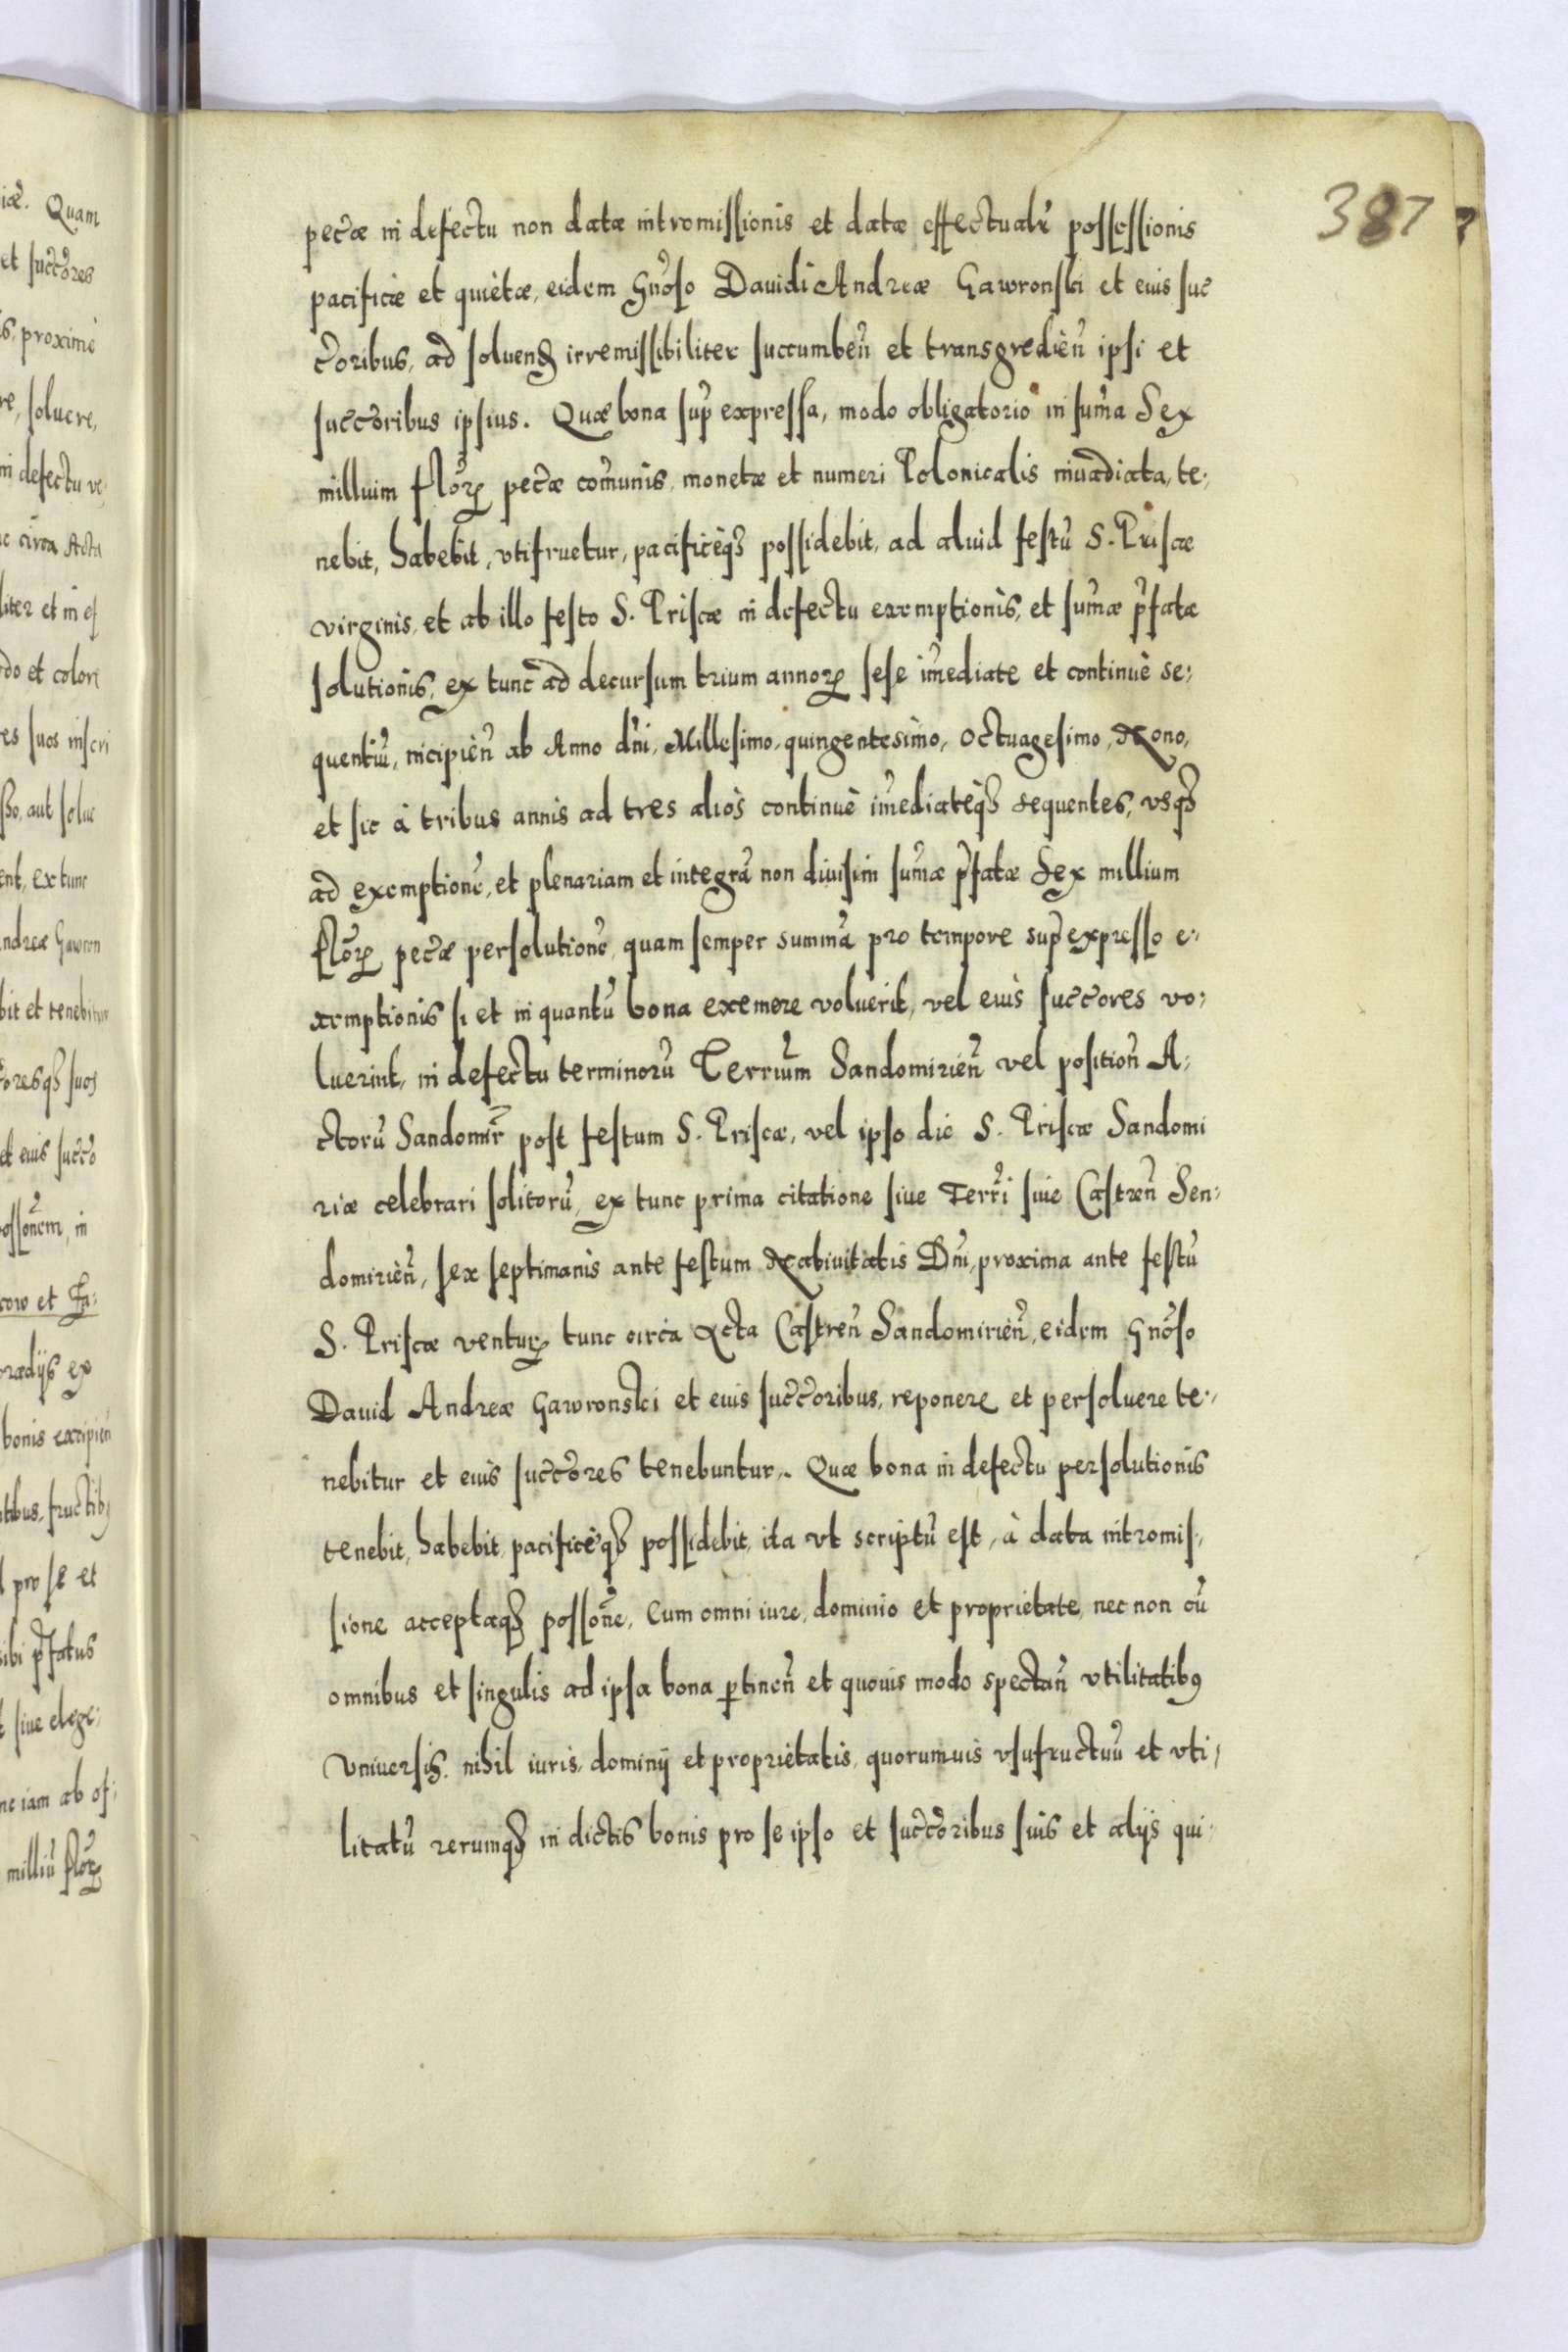 387
pecæ in defectu non datæ intromissionis et datæ effectualr possessionis
pacificæ et quietæ, eidem Gnoso Dauidi Andreæ Gawronski et eius suc
coribus, ad soluend irremissibiliter succumben et transgredien ipsi et
succoribus ipsius. Quæ bona sup expressa, modo obligatorio in suma Sex
millium flor pecæ comunis, monetæ et numeri Polonicalis inuadiata, te:
nebit, habebit, vtifruetur, pacificeqȝ possidebit, ad aliud festu S. Priscæ
virginis, et ab illo festo S. Priscæ in defectu exemptionis, et sumæ pfatæ
solutionis, ex tunc ad decursum trium annor sese imediate et continuè se:
quentiu, incipien ab Anno dni, Millesimo, quingentesimo, Octuagesimo, Nono,
et sic à tribus annis ad tres aliòs continuè imediatèqȝ sequentes, vsqȝ
ad exemptione, et plenariam et integra non diuisim sumæ pfatæ Sex millium
flor pecæ persolutione, quam semper summa pro tempore sup expresso e:
xemptionis si et in quantu bona exemere voluerit, vel eius succores vo:
luerint, in defectu terminoru Terrium Sandomirien vel position A:
ctoru Sandomir post festum S. Priscæ, vel ipso die S. Priscæ Sandomi
riæ celebrari solitoru, ex tunc prima citatione siue Terri siue Castren Sen:
domirien, sex septimanis ante festum Natiuitatis Dni, proxima ante festu
S. Priscæ ventur tunc circa Acta Castren Sandomirien, eidem Gnoso
Dauid Andreæ Gawronski et eius succoribus, reponere et persoluere te:
nebitur et eius succores tenebuntur. Quæ bona in defectu persolutionis
tenebit, habebit, pacificèqȝ possidebit, ita vt scriptu est, à data intromis:
sione acceptaqȝ possone, Cum omni iure, dominio et proprietate, nec non cu
omnibus et singulis ad ipsa bona ptinen et quouis modo spectan vtilitatibꝰ
vniuersis. nihil iuris, dominij et proprietatis, quorumuis vsufructuu et vti:
litatu rerumqȝ in dictis bonis pro se ipso et succoribus suis et alijs qui: